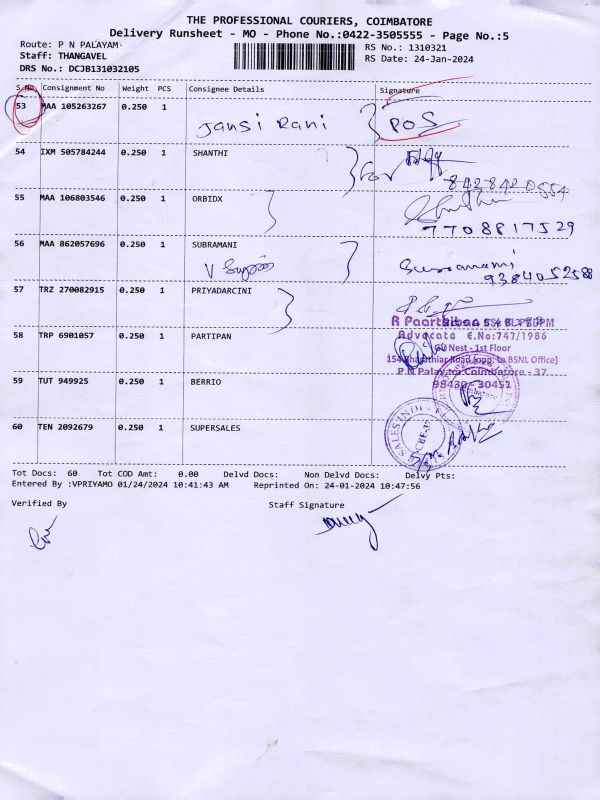 THE PROFESSIONAL COURIERS, COIMBATORE
Delivery Runsheet - MO - Phone No.:0422-3505555 - Page No.:5
Route: P N PALAYAM
RS No.: 1310321
Staff: THANGAVEL
RS Date: 24-Jan-2024
DRS No.: DCJB131032105
S.No. Consignment No Weight PCS Consignee Details Signature
53 MAA 105263267 0.250 1
Jansi Rani POS
54 IXM 505784244 0.250 1 SHANTHI
8428420554
55 MAA 106803546 0.250 1 ORBIDX
7708817529
56 MAA 862057696 0.250 1 SUBRAMANI
9384052588
57 TRZ 270082915 0.250 1 PRIYADARCINI
58 TRP 6901057 0.250 1 PARTIPAN
Advocate E.No:747/1986
Nest - 1st Floor
(opp. to BSNL Office)
Coimbatore - 37
98430 - 30451
59 TUT 949925 0.250 1 BERRIO
60 TEN 2092679 0.250 1 SUPERSALES
Tot Docs: 60 Tot COD Amt: 0.00 Delvd Docs: Non Delvd Docs: Delvy Pts:
Entered By :VPRIYAMO 01/24/2024 10:41:43 AM Reprinted On: 24-01-2024 10:47:56
Verified By Staff Signature